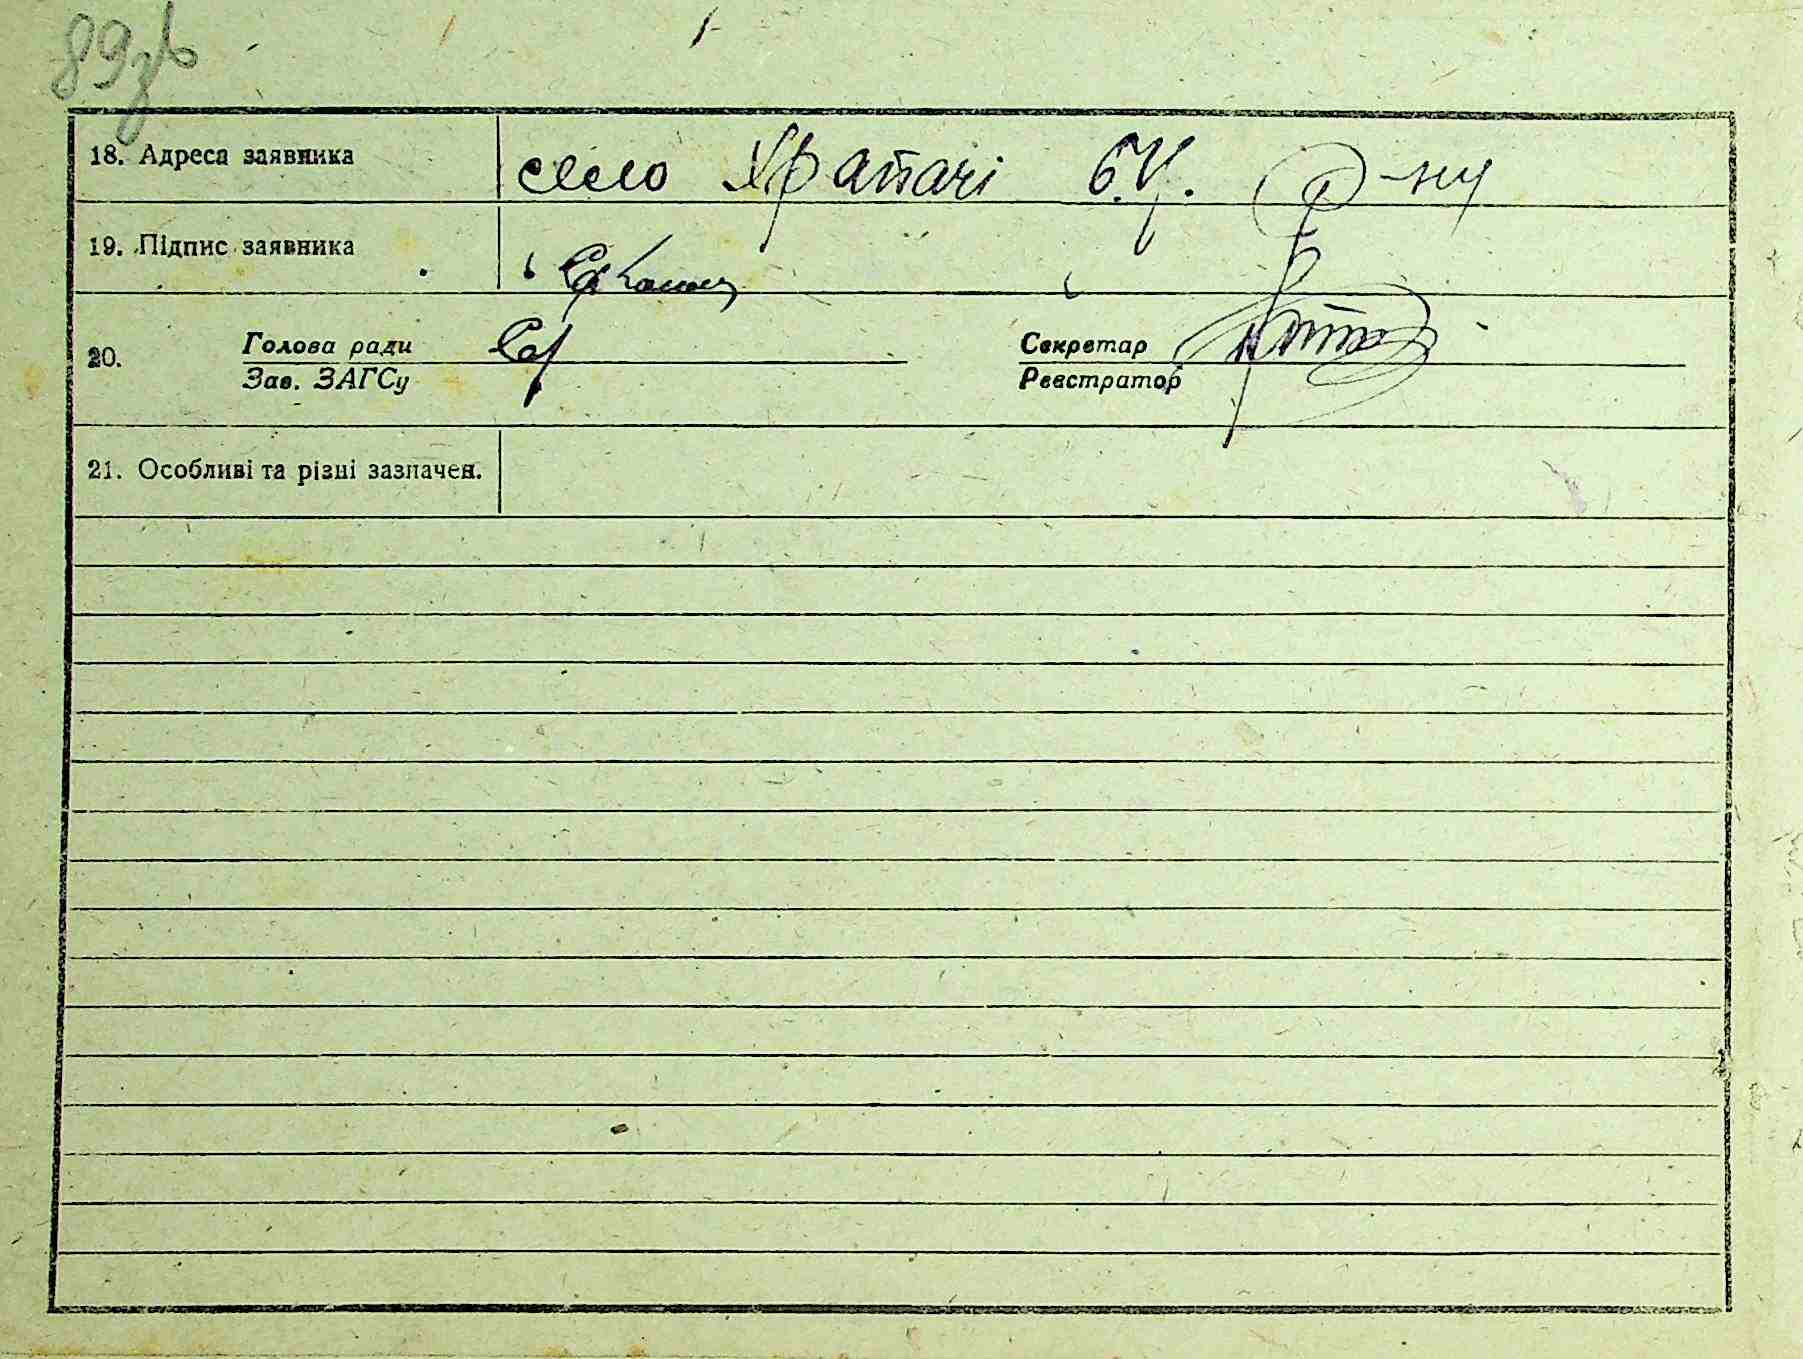 89зв
18. Адреса заявника село Храпачі б.Ц. р-ну
19. Підпис заявника
20. Голова ради Секретар
Зав. ЗАГСу Реєстратор
21. Особливі та різні зазначен.